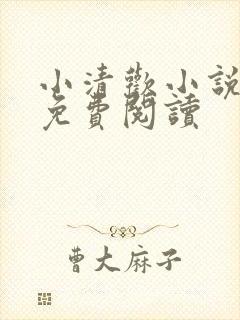 小清歡小說
免費閱讀
曹大麻子